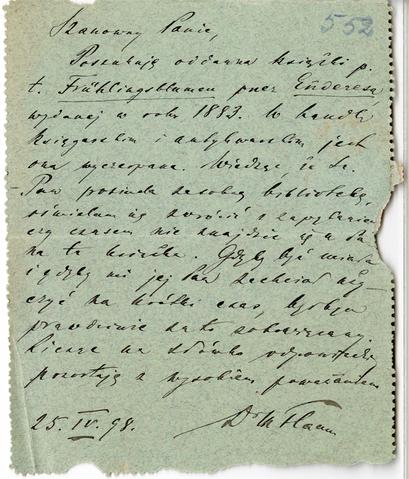 552
Szanowny Panie,
Poszukuję oddawna książki p.
t. Frühlingsblumen przez Enderesa
wydanej w roku 1883. W handlu
księgarskim i antykwarskim jest
ona wyczerpana. Wiedząc, że Sz.
Pan posiada zasobną bibliotekę,
ośmielam się zwrócić z zapytaniem
czy czasem nie znajdzie się u Pana
ta książka. Gdyby być miała
i gdyby mi jej Pan zechciał uży-
czyć na krótki czas, byłbym
prawdziwie za to zobowiązany.
Licząc na słówko odpowiedzi
pozostaję z wysokiem poważaniem
25. IV. 98. Dr M Flaum